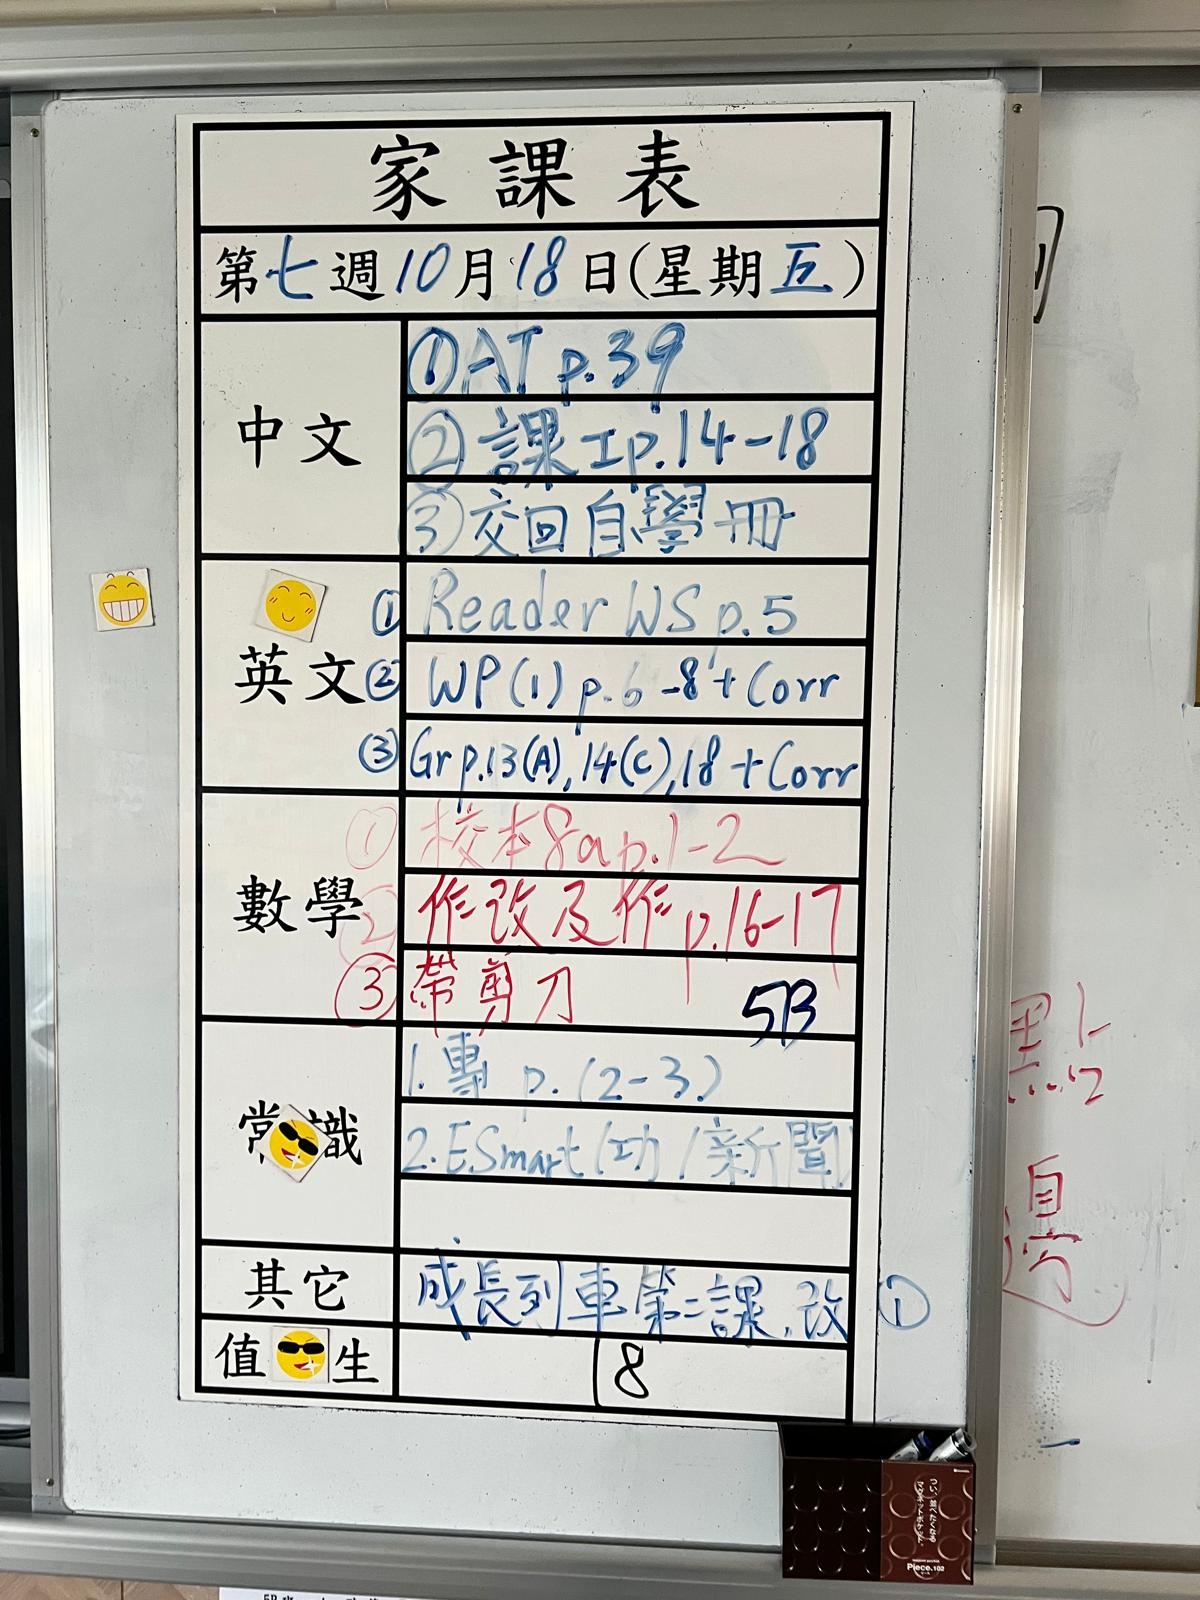 家課表
第七週10月18日(星期五)
中文
①AT p.39
②課工p.14-18
③交回自學冊
英文
① Reader WS p.5
② WP(1) p.6-8 + Corr
③ Gr p.13(A), 14(C), 18 + Corr
數學
① 校本8a p.1-2
② 作改及作 p.16-17
③ 帶剪刀
5B
常識
1. 專 p.(2-3)
2. ESmart (功/新聞)
其它
成長列車第二課,改 ①
值 生
18
點
自
Piece.102